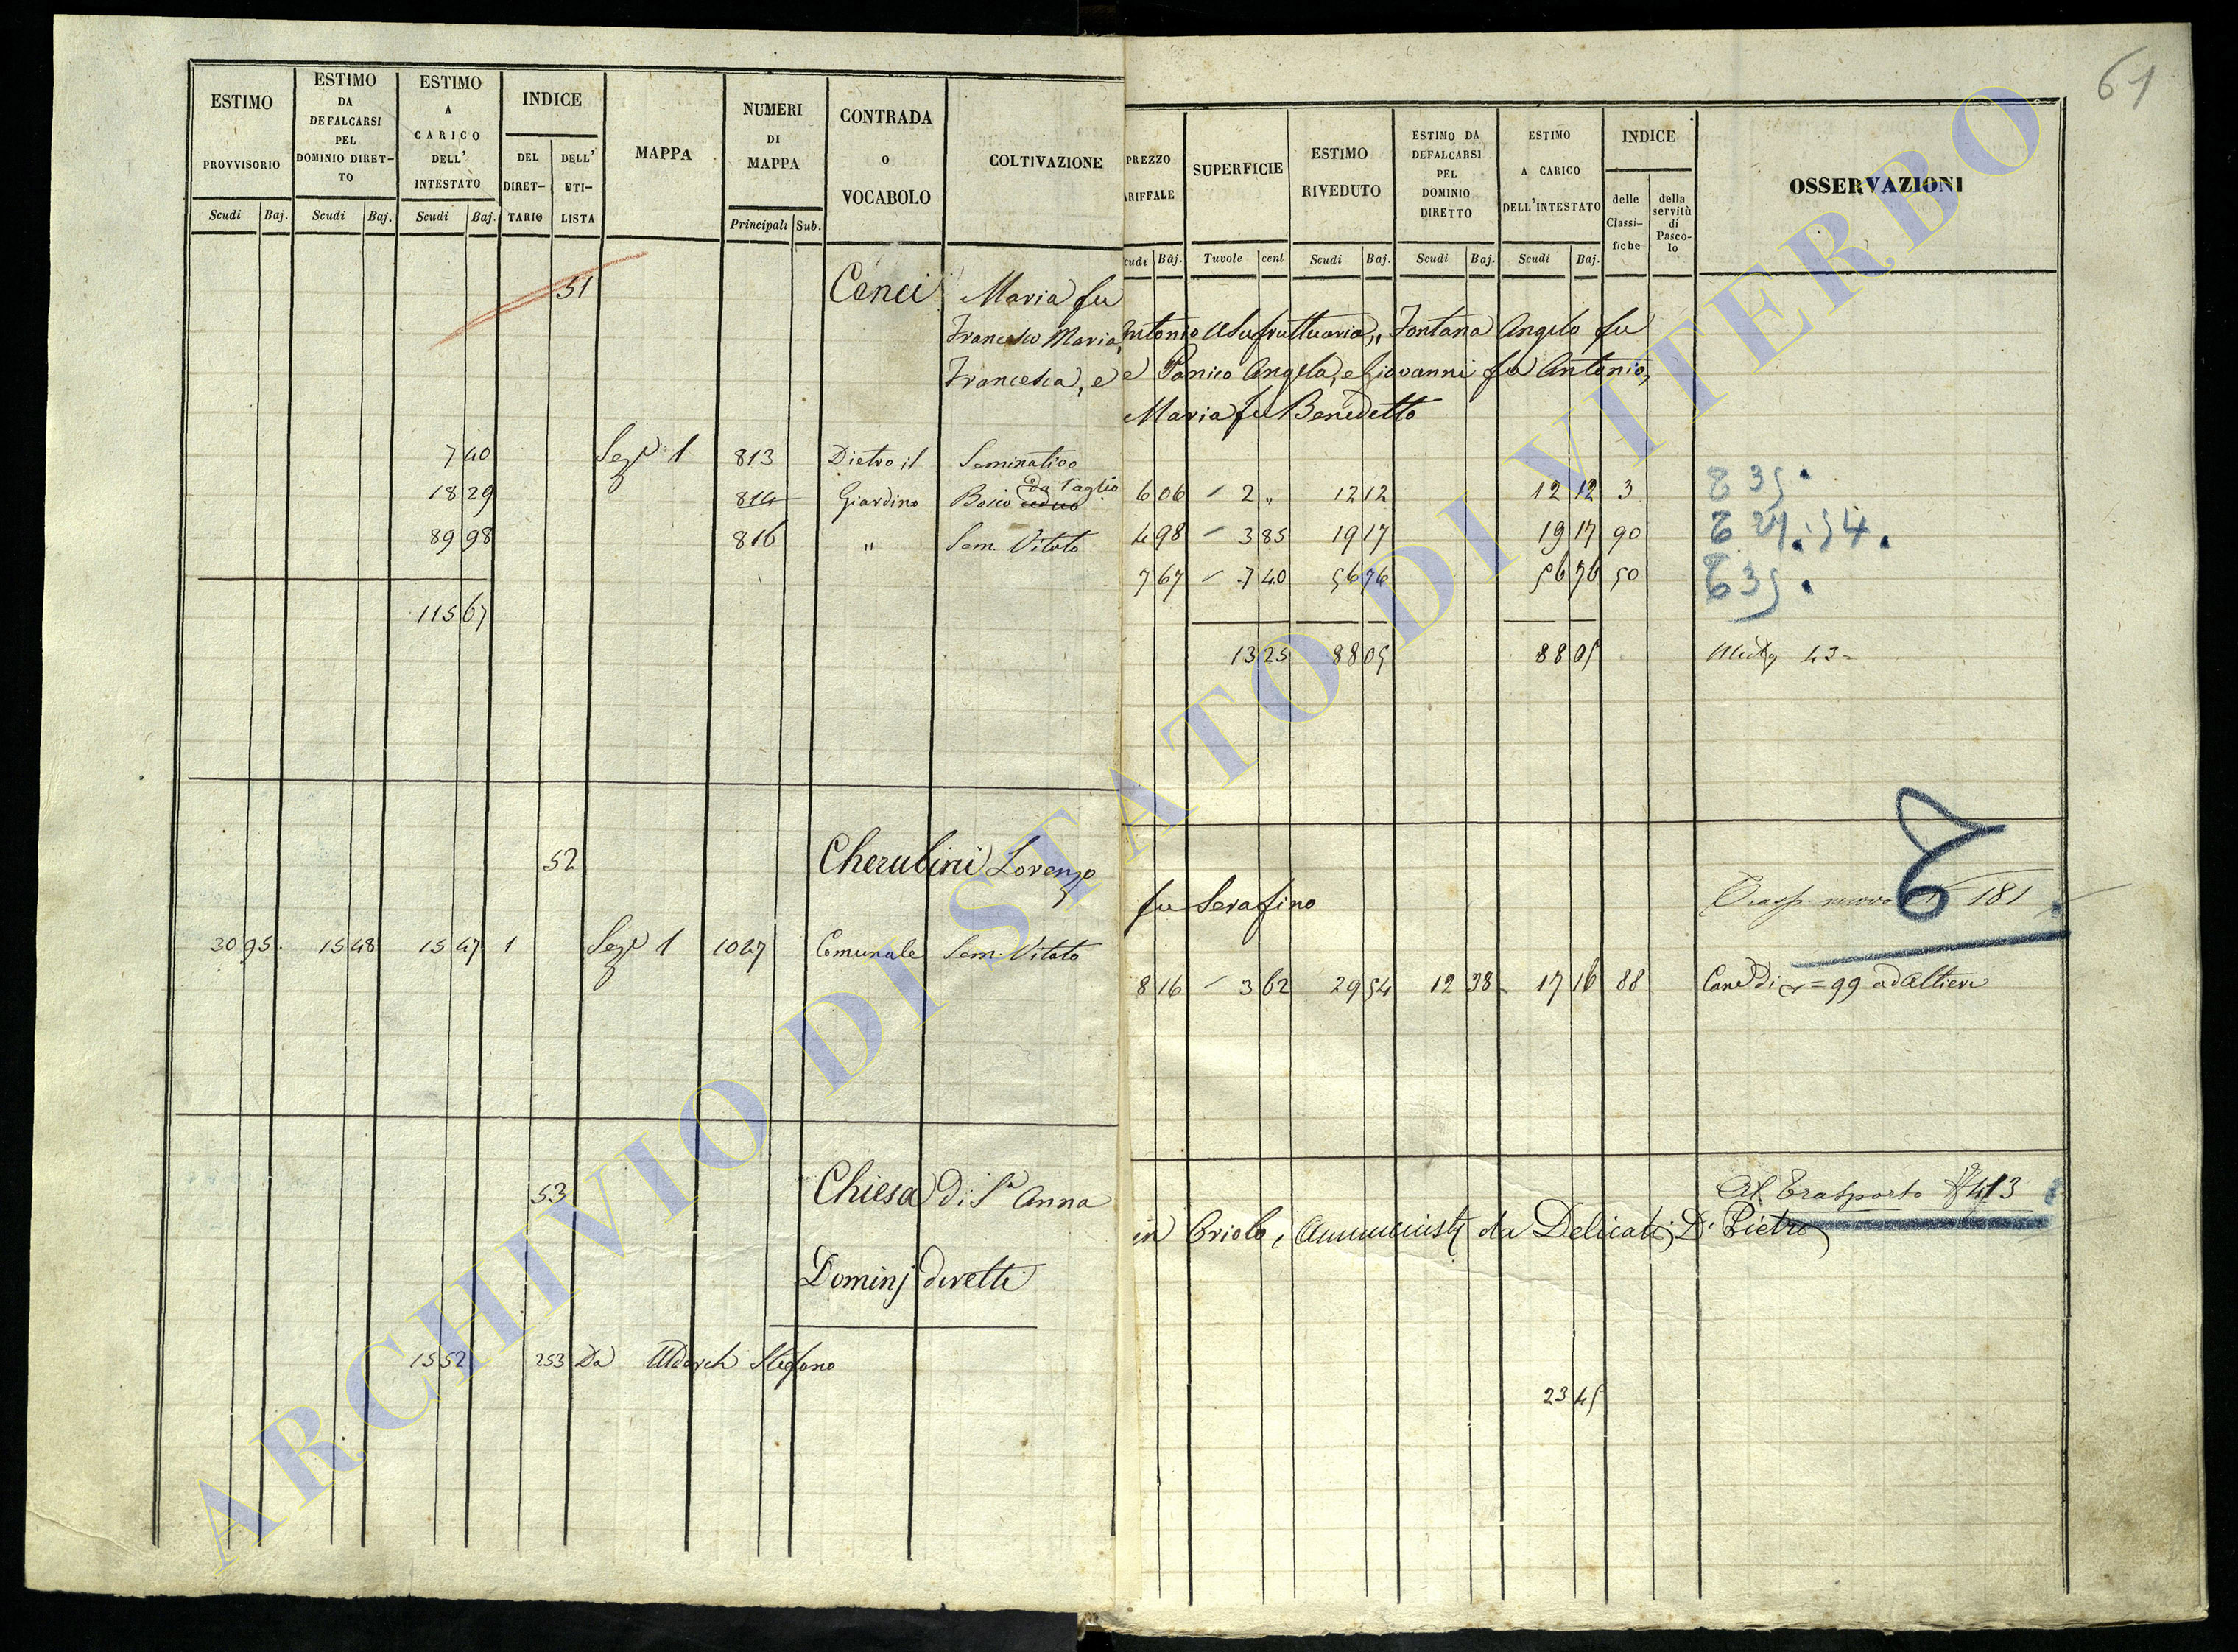 61
ESTIMO PROVVISORIO
ESTIMO DA DEFALCARSI PEL DOMINIO DIRET-TO
ESTIMO A CARICO DELL' INTESTATO
INDICE
DEL DIRET-TARIO
DELL' UTI-LISTA
MAPPA
NUMERI DI MAPPA
CONTRADA o VOCABOLO
COLTIVAZIONE
Scudi Baj. Scudi Baj. Scudi Baj. Principali Sub.
PREZZO
ARIFFALE
SUPERFICIE
ESTIMO RIVEDUTO
ESTIMO DA DEFALCARSI PEL DOMINIO DIRETTO
ESTIMO A CARICO DELL'INTESTATO
INDICE
delle Classi-fiche
della servitù di Pasco-lo
OSSERVAZIONI
cudi Baj. Tavole cent Scudi Baj. Scudi Baj. Scudi Baj.
51 Cenci Maria fu
Francesco Maria, Antonio Usufruttuaria, Fontana Angelo fu
Francesca, e e Panico Angela, e Giovanni fu Antonio,
Maria fu Benedetto
7 40 Sez.e 1 813 Dietro il Seminativo
18 29 814 Giardino Bosco ceduo da taglio
89 98 816 " Sem. Vitato
115 67
6 06 2 " 12 12 12 12 3
4 98 3 85 19 17 19 17 90
7 67 7 40 56 76 56 76 50
13 25 88 05 88 05
52 Cherubini Lorenzo
fu Serafino
Trasp. nuovo 181
30 95 15 48 15 47 1 Sez.e 1 1027 Comunale Sem. Vitato
8 16 3 62 29 54 12 38 17 16 88 Can. di = 99 ad Altieri
53 Chiesa di S.a Anna
Al Trasporto 413
in Oriolo, Amminist. da Delicati D. Pietro
Dominj diretti
15 52 253 Da Stefano
23 45
ARCHIVIO DI STATO DI VITERBO